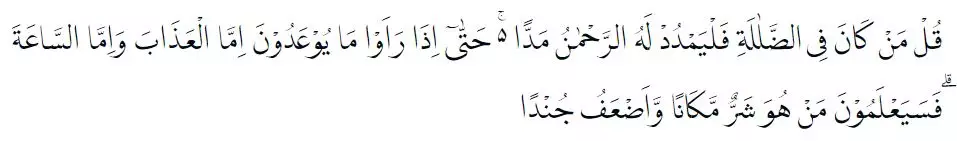 قُلْ مَنْ كَانَ فِى الضَّلٰلَةِ فَلْيَمْدُدْ لَهُ الرَّحْمٰنُ مَدًّا ۚ۵ حَتّٰٓى اِذَا رَاَوْا مَا يُوْعَدُوْنَ اِمَّا الْعَذَابَ وَاِمَّا السَّاعَةَ
ؕ فَسَيَعْلَمُوْنَ مَنْ هُوَ شَرٌّ مَّكَانًا وَّاَضْعَفُ جُنْدًا